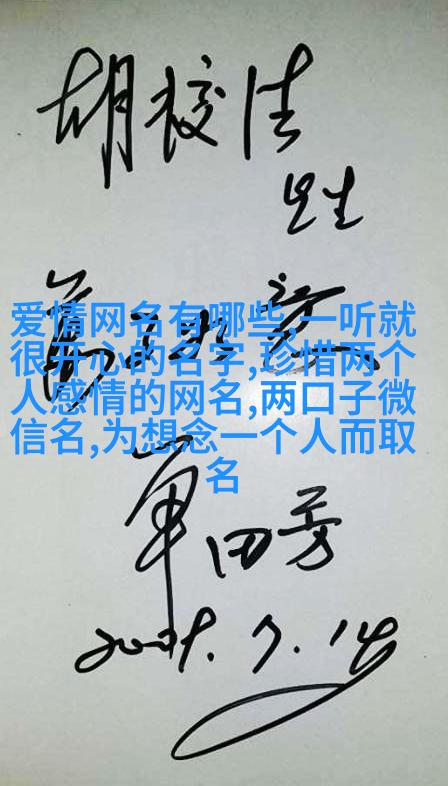 胡
先生
爱情网名有哪些,一听就
很开心的名字,珍惜两个
人感情的网名,两口子微
信名,为想念一个人而取
名
单田芳